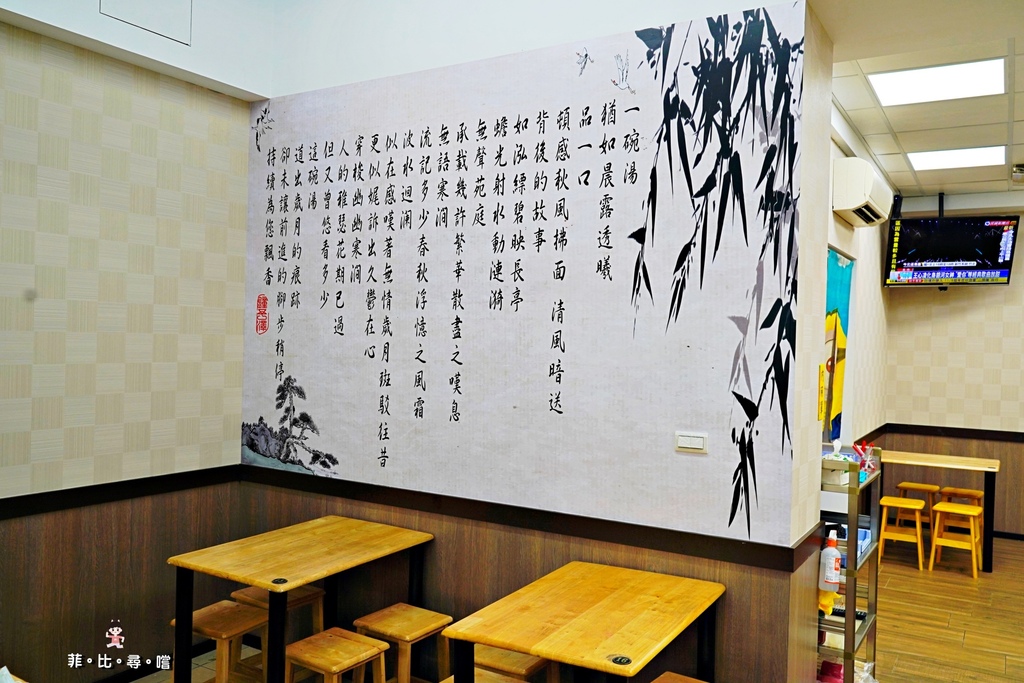 一碗湯
猶如晨露透曦
品一口
頓感秋風拂面 清風暗送
背後的故事
如泓縹碧映長亭
蟾光射水動漣漪
無聲苑庭
承載幾許繁華散盡之嘆息
無語寒澗
流記多少春秋浮憶之風霜
波水迴瀾
似在感嘆著無情歲月斑駁往昔
更似娓訴出久鬱在心
穿梭幽幽寒澗
人的稚瑟花期已過
但又曾悠看多少
這碗湯
道出歲月的痕跡
卻未讓前進的腳步稍停
持續為您飄香
16
菲。比。尋。嚐